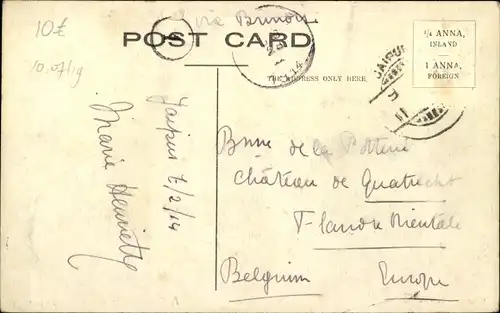 10£
via Brindisi
POST CARD
1/4 ANNA,
INLAND
1 ANNA,
FOREIGN
THE ADDRESS ONLY HERE
JAIPUR
10.07/19
Jaipur 7/2/14
Marie Henriette
Bnne de la
Château de
Flandre Orientale
Belgium
Europe